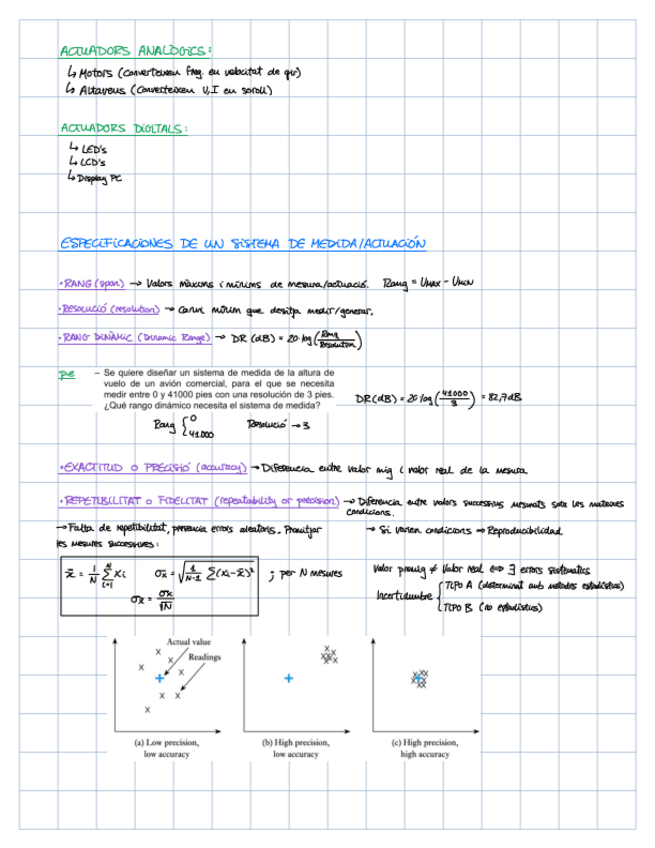 ACTUADORS ANALÒGICS:
↳ Motors (converteixen freq. en velocitat de gir)
↳ Altaveus (converteixen V,I en soroll)
ACTUADORS DIGITALS:
↳ LED's
↳ LCD's
↳ Display PC
ESPECIFICACIONES DE UN SISTEMA DE MEDIDA/ACTUACIÓN
· RANG (span) → Valors màxims i mínims de mesura/actuació. Rang = Vmax - Vmin
· RESOLUCIÓ (resolution) → Canvi mínim que desitja medir/generar.
· RANG DINÀMIC (Dinamic Range) → DR (dB) = 20·log(Rang/Resolution)
pe
– Se quiere diseñar un sistema de medida de la altura de
vuelo de un avión comercial, para el que se necesita
medir entre 0 y 41000 pies con una resolución de 3 pies.
¿Qué rango dinámico necesita el sistema de medida?
DR(dB) = 20 log(41000/3) = 82,7dB
Rang { 0 41000 Resolució → 3
· EXACTITUD O PRECISIÓ (accuracy) → Diferencia entre valor mig i valor real de la mesura
· REPETIBILITAT o FIDELITAT (repeatability or precision) → Diferencia entre valors successius mesurats sota les mateixes
condicions.
→ Falta de repetibilitat, presencia errors aleatoris. Promitjar
les mesures successives:
→ Si varien condicions ⇒ Reproducibilidad
x̄ = 1/N ∑ᵢ₌₁ᴺ xi σx = √(1/(N-1) ∑(xi-x̄)²) ; per N mesures
σx̄ = σx/√N
Valor promig ≠ Valor real ⟺ ∃ errors sistematics
Incertidumbre { TIPO A (determinat amb metodes estadístics)
TIPO B (no estadístics)
Actual value
Readings
(a) Low precision,
low accuracy
(b) High precision,
low accuracy
(c) High precision,
high accuracy